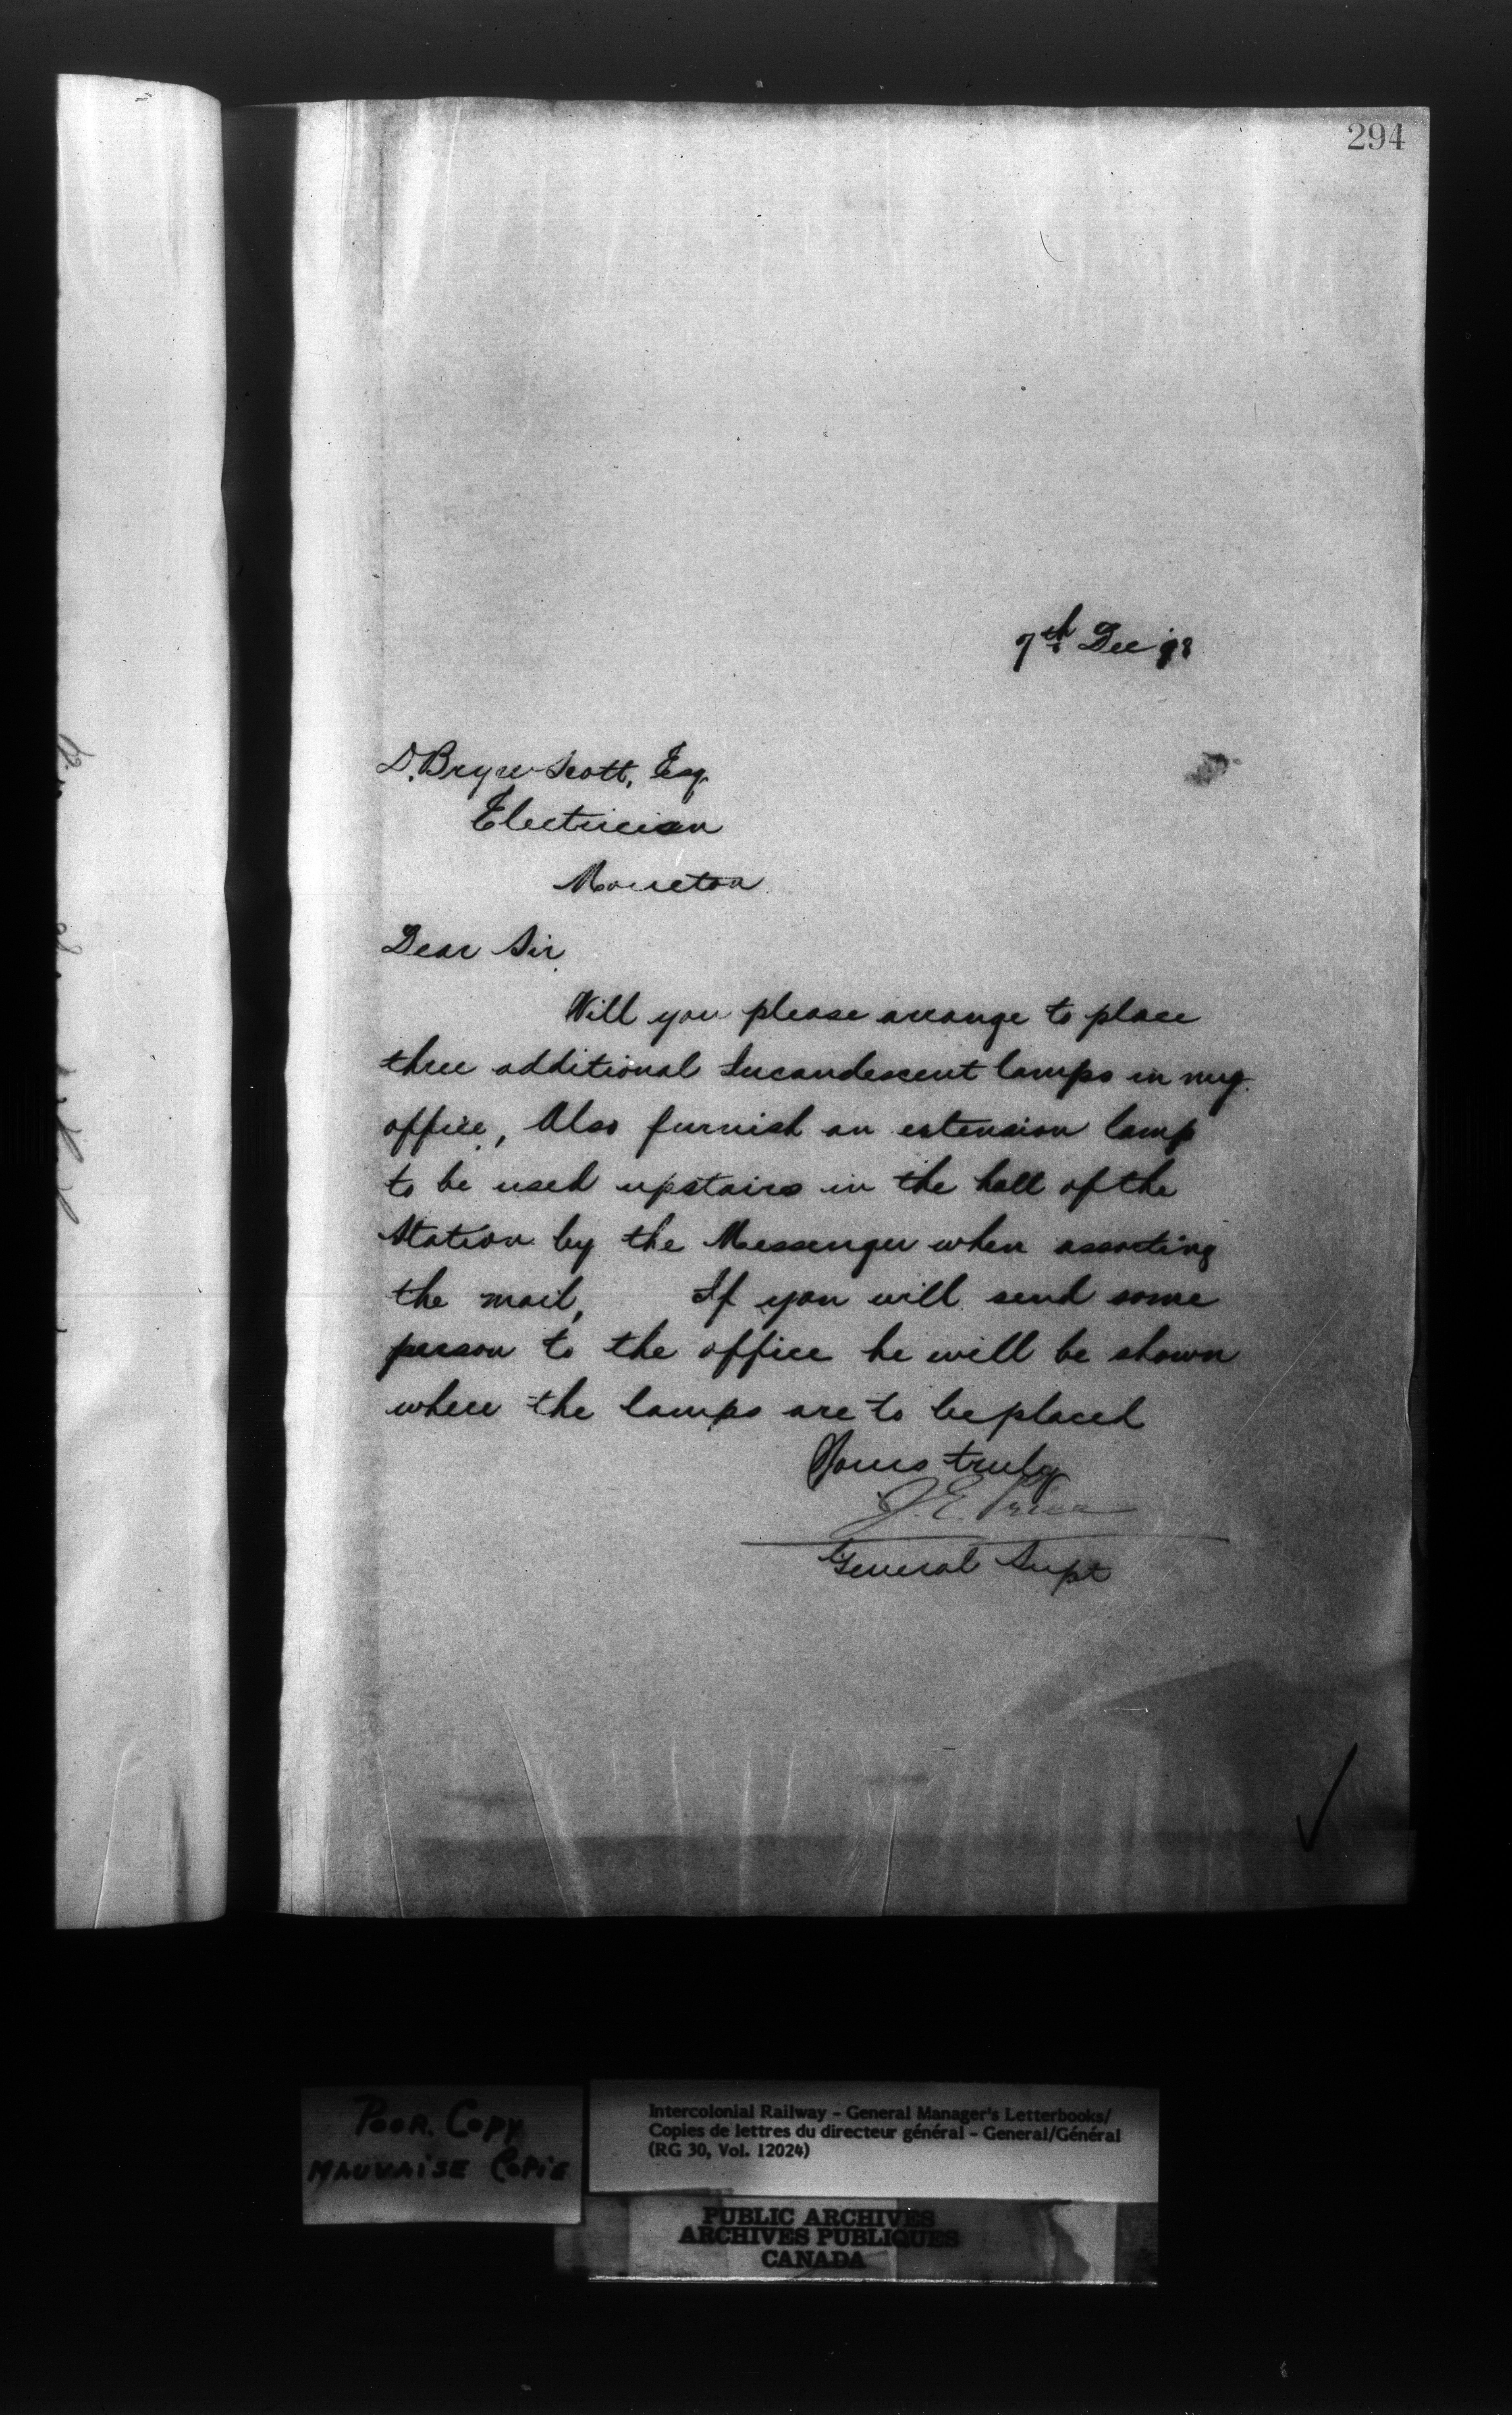 294
7th Dec 98
D. Bryce Scott, Esq.
Electrician
Moncton
Dear Sir
Will you please arrange to place
three additional Incandescent lamps in my
office, Also furnish an extension lamp
to be used upstairs in the hall of the
Station by the Messenger when assorting
the mail, If you will send some
person to the office he will be shown
where the lamps are to be placed
Yours truly
J. E. Price
General Supt
POOR COPY
MAUVAISE COPIE
Intercolonial Railway - General Manager's Letterbooks/
Copies de lettres du directeur général - General/Général
(RG 30, Vol. 12024)
PUBLIC ARCHIVES
ARCHIVES PUBLIQUES
CANADA